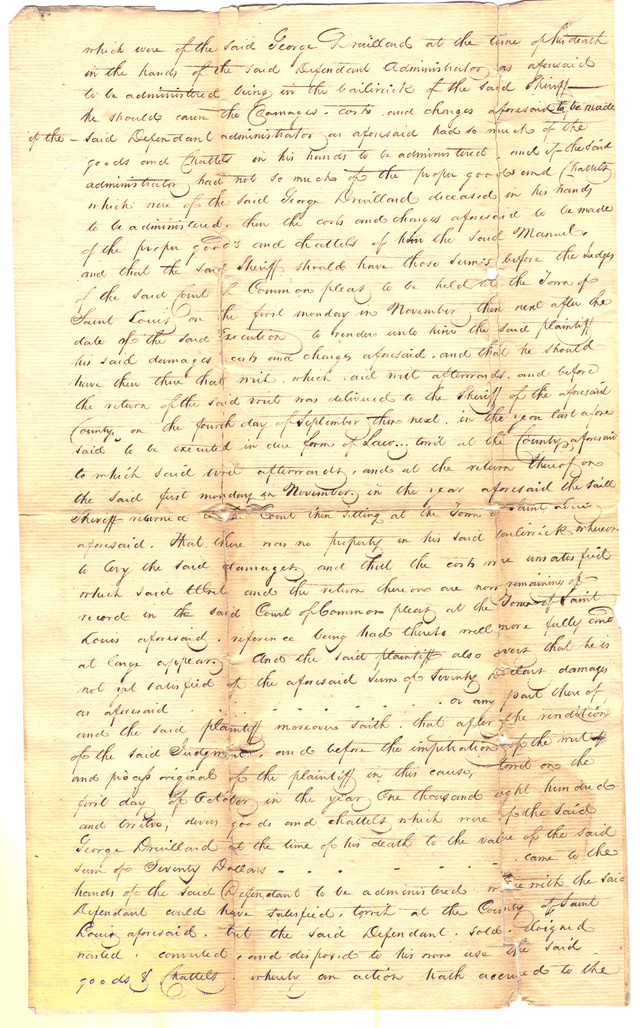 which were of the said George Druillard at the time of his death
in the hands of the said Defendant Administrator as aforesaid
to be administered being in the bailiwick of the said Sheriff—
he should cause the Damages. costs. and charges aforesaid to be made
if the — said Defendant administrator as aforesaid had so much of the
goods and Chattels in his hands to be administered. and if the said
administrator had not so much of the proper goods and Chattels
which were of the said George Druillard deceased in his hands
to be administered, then the costs and charges aforesaid to be made
of the proper goods and chattels of him the said Manuel.
and that the said Sheriff should have those sums before the Judges
of the said Court of Common pleas to be held at the Town of
Saint Louis on the first monday in November then next after the
date of the said Execution to render unto him the said plaintiff
his said damages costs and charges aforesaid. and that he should
have then there that writ. which said writ afterwards. and before
the return of the said writ was delivered to the Sheriff of the aforesaid
County on the fourth day of September then next. in the year last afore
said to be executed in due form of Law... towit at the County aforesaid
to which said writ afterwards, and at the return thereof on
the said first monday in November, in the year aforesaid the said
Sheriff returned Court then sitting at the Town Saint Louis
aforesaid. That there was no property in his said bailiwick whereon
to levy the said damages, and that the costs were unsatisfied
which said Writ and the return thereon are now remaining of
record in the said Court of Common pleas at the Town of Saint
Louis aforesaid. reference being had thereto will more fully and
at large appear. And the said plaintiff also avers that he is
not yet satisfied of the aforesaid sum of Seventy dollars damages
as aforesaid . . . . . . . . or any part there of,
and the said plaintiff moreover saith. that after the rendition
of the said Judgment, and before the impetration of the writ &
and process original of the plaintiff in this cause, towit on the
first day of October in the year One thousand eight hundred
and twelve, divers goods and chattels which were of the said
George Druillard at the time of his death to the value of the said
sum of Seventy Dollars - - - - - - - came to the
hands of the said Defendant to be administered wherewith the said
Defendant could have satisfied. towit at the County of Saint
Louis aforesaid. but the said Defendant. sold. eloigned
wasted. converted. and disposed to his own use the said
goods & Chattels. whereby an action hath accrued to the